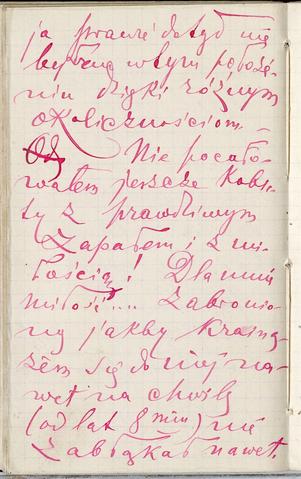 ja prawie dotąd nie
byłem w tym położe-
niu dzięki różnym
okolicznościom –
Nie pocało-
wałem jeszcze kobie-
ty z prawdziwym
zapałem i z mi-
łością! Dla mnie
miłość.... zabronio-
ny jakby
się do niej na-
wet na chwilę
(od lat 8miu) nie
zabłąkał nawet.